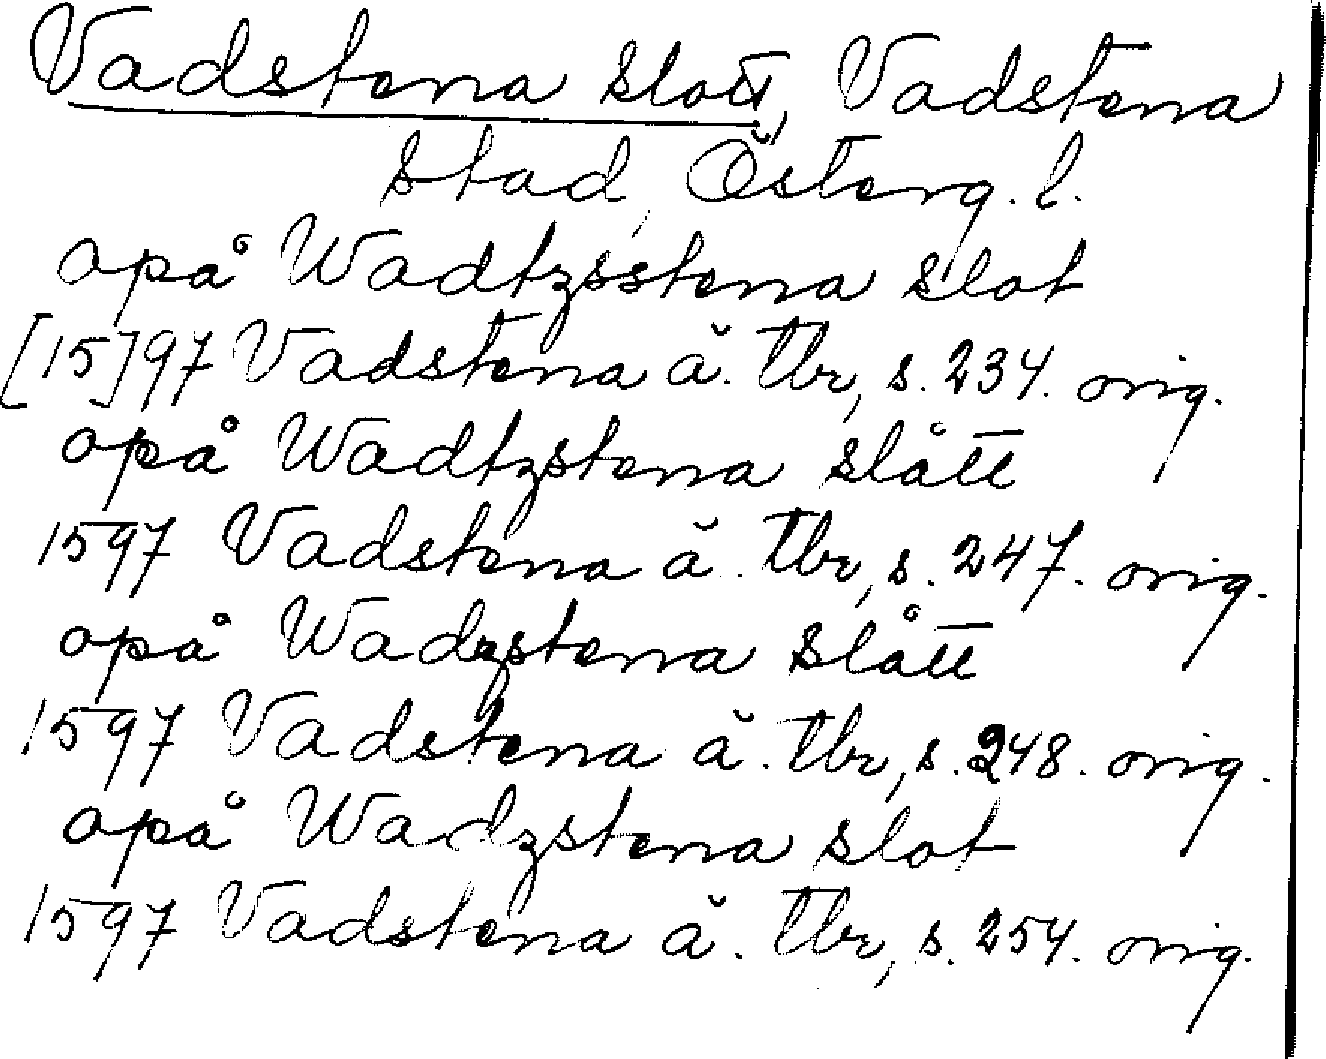 Vadstena slott, Vadstena
stad, Österg. l.
opå Wadtzsstena slot
[15]97 Vadstena ä. tbr, s. 234. orig.
opå Wadtzstena slått
1597 Vadstena ä. tbr, s. 247. orig.
opå Wadzstena slått
1597 Vadstena ä. tbr, s. 248. orig.
opå Wadzstena slot
1597 Vadstena ä. tbr, s. 254. orig.